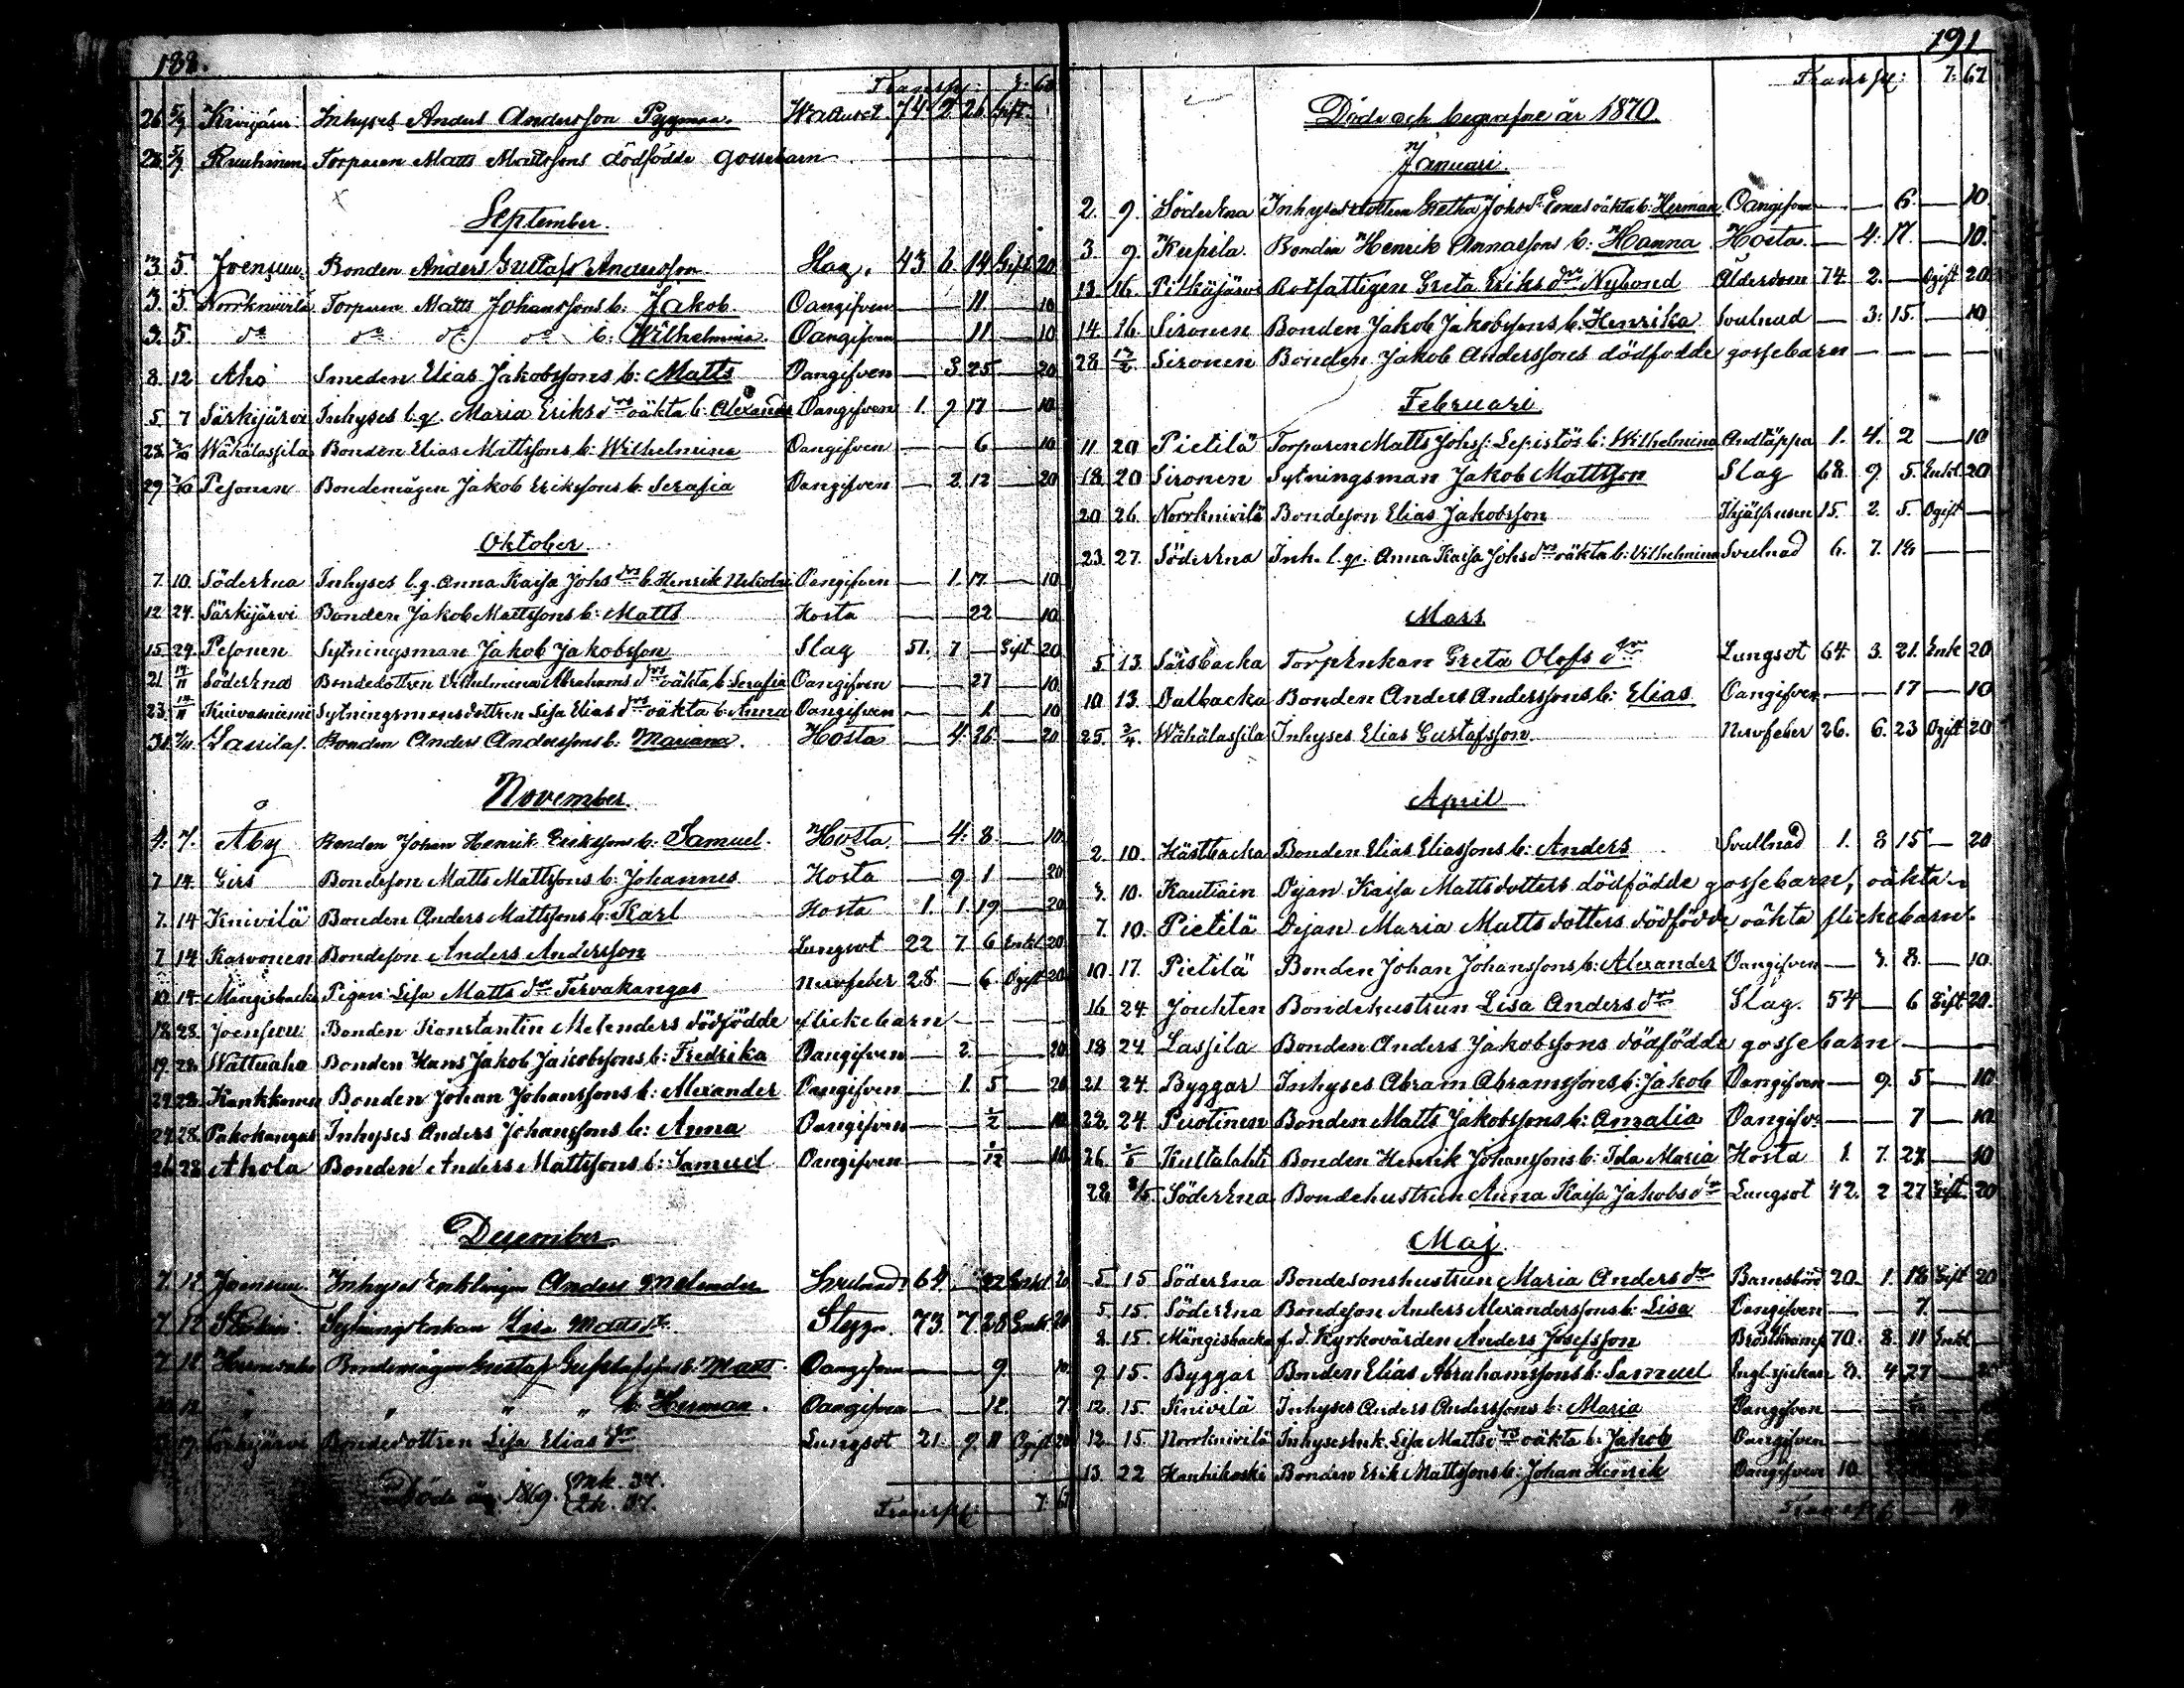 188.
Transp: 7: 60
26. 5/9 Kivijärvi Inhyses Anders Andersson Pyymaa. Wattusot. 74 2 26. Gift.
28. 5/9 Ruuhinen Torparen Matts Mattssons dödfödde gossebarn
September.
3. 5. Joensuu. Bonden Anders Gustaf Andersson Slag. 43. 6 14 Gift 20
3. 5. Norrknivilä Torparen Matts Johanssons b: Jakob. Oangifven — — 11. — 10
3. 5 do do do do b: Wilhelmina. Oangifven — — 11. — 10
8. 12 Aho Smeden Elias Jakobssons b: Matts Oangifven — 3 25 — 20
5 7 Särkijärvi Inhyses l. q. Maria Eriksdrs oäkta b: Alexander Oangifven 1. 9 17 — 10
28. 3/10 Wähälassila Bonden Elias Mattssons b: Wilhelmina Oangifven — — 6 — 10
29. 3/10 Pesonen Bondemågen Jakob Erikssons b: Serafia Oangifven — 2. 12 — 20
Oktober.
7. 10. Söderena Inhyses l. q. Anna Kaisa Johsdrs b. Henrik Oangifven — 1. 17. — 10
12 24. Särkijärvi Bonden Jakob Mattssons b: Matts Hosta — — 22 — 10.
15. 24. Pesonen Sytningsman Jakob Jakobsson Slag 51. 7 — Gift 20
21. 14/11 Söderena Bondedottren Wilhelmina Abrahamsdrs oäkta b: Serafia Oangifven — — 27 — 10.
23. 14/11 Knivasniemi Sytningsmansdottren Lisa Eliasdrs oäkta b. Anna Oangifven — — 1. — 10
31. 7/11. Lassila Bonden Anders Anderssons b: Mariana. Hosta — 4. 26. — 20
November.
4. 7. Åby Bonden Johan Henrik Erikssons b: Samuel. Hosta — 4: 8. — 10.
7 14. Girs Bondeson Matts Mattssons b: Johannes Hosta — 9. 1 — 20
7. 14 Knivilä Bonden Anders Mattssons b: Karl Hosta 1. 1. 19 — 20
7 14 Karvonen Bondeson Anders Andersson Lungsot 22 7. 6 Enkl 20
10. 14. Mängisbacka Pigan Lisa Mattsdr Tervakangas Nervfeber 28. — 6. Ogift 20
18. 28. Joensuu Bonden Konstantin Melenders dödfödde flickebarn — —
19. 28. Wattuaho Bonden Hans Jakob Jakobssons b: Fredrika Oangifven — 2. — — 20
24. 28. Kankkonen Bonden Johan Johanssons b: Alexander Oangifven — 1. 5 — 20
24. 28. Pakokangas Inhyses Anders Johanssons b: Anna Oangifven — — 1/2 — 10
26. 28. Ahola Bonden Anders Mattssons b: Samuel Oangifven — — 1/12 — 10
December.
7. 12. Joensuu Inhyses Enklingen Anders Melender 64. — 22 Enkl 20
7. 12. Sytningsenkan Lisa Mattsdr. Stygn. 73. 7. 28 Enk. 20
7. 12. Bondemågen Gustaf Gustafssons b: Matts. Oangifven — — 9. — 10
12. " " " " b: Herman. Oangifven — — 12. — 7.
17. Särkijärvi Bondedottren Lisa Eliasdr Lungsot 21. 9. 11 Ogift 20
Döde år 1869. Mk. 34.
Transp: — 7. 67
191
Transp: 7: 67.
Döde och begrafne år 1870.
Januari.
2. 9. Söderena Inhysesdottren Gretha Johsdr Enas oäkta b: Herman Oangifven — — 6. — 10.
3. 9. Keisila. Bonden Henrik Annassons b: Hanna Hosta — 4: 17. — 10.
13. 16. Pitkäjärvi Rotfattigen Greta Eriksdr Nylund Ålderdom 74. 2. — Ogift 20.
14. 16. Sironen Bonden Jakob Jakobssons b: Henrika Svulnad — 3: 15. — 10
28 13/2. Sironen Bonden Jakob Anderssons dödfödde gossebarn — — — —
Februari
11 20 Pietilä Torparen Matts Johss: Lepistös b: Wilhelmina Andtäppa 1. 4. 2 — 10
18. 20 Sironen Sytningsman Jakob Mattsson Slag 68. 9. 5. Enkl. 20
20 26. Norrknivilä Bondeson Elias Jakobsson Ihjälfrusen 15. 2. 5. Ogift —
23. 27. Söderena Inh. l. q. Anna Kaisa Johsdrs oäkta b: Wilhelmina Svulnad 6. 7. 18 — —
Mars
5. 13. Särsbacka Torpenkan Greta Olofsdr Lungsot 64. 3. 21. Enk 20
10. 13. Dalbacka Bonden Anders Anderssons b: Elias Oangifven — — 17 — 10
25. 3/4. Wähälassila Inhyses Elias Gustafsson. Nervfeber 26. 6. 23 Ogift 20
April
2. 10. Hästbacka Bonden Elias Eliassons b: Anders Svullnad 1. 8 15 — 20
3. 10. Kautiain Dejan Kaisa Mattsdotters dödfödde gossebarn, oäkta
7. 10. Pietilä Dejan Maria Mattsdotters dödfödde oäkta flickebarn.
10. 17. Pietilä Bonden Johan Johanssons b: Alexander Oangifven — 3. 8. — 10.
16 24. Jouhten Bondehustrun Lisa Andersdr Slag. 54 — 6 Gift 20.
18 24. Lassila Bonden Anders Jakobssons dödfödde gossebarn — — —
21. 24. Byggar Inhyses Abram Abramssons b: Jakob Oangifven — 9. 5 — 10
22. 24. Puotinen Bonden Matts Jakobssons b: Amalia Oangifv: — — 7 — 10.
26. 1/5 Kultalahti Bonden Henrik Johanssons b: Ida Maria Hosta 1. 7. 27. — 10
28 8/5. Söderena Bondehustrun Anna Kaisa Jakobsdr Lungsot 42. 2 27 Gift. 20
Maj.
5. 15 Söderena Bondesonshustrun Maria Andersdr Barnsbörd 20. 1. 18 Gift 20
5. 15. Söderena Bondeson Anders Alexanderssons b: Lisa Oangifven — — 7. —
8. 15. Mängisbacka f. d. Kyrkovärden Anders Josefsson Bröstkramp 70. 8. 11 Enkl —
9. 15. Byggar Bonden Elias Abrahamssons b: Samuel Engl. sjukan 8. 4 27 — 20
12. 15. Knivilä Inhyses Anders Anderssons b: Maria Oangifven —
12 15. Norrknivilä Inhyses enk. Lisa Mattsdrs oäkta b: Jakob Oangifven —
13. 22 Hanhikoski Bonden Erik Mattssons b: Johan Henrik Oangifven 10
Transp: